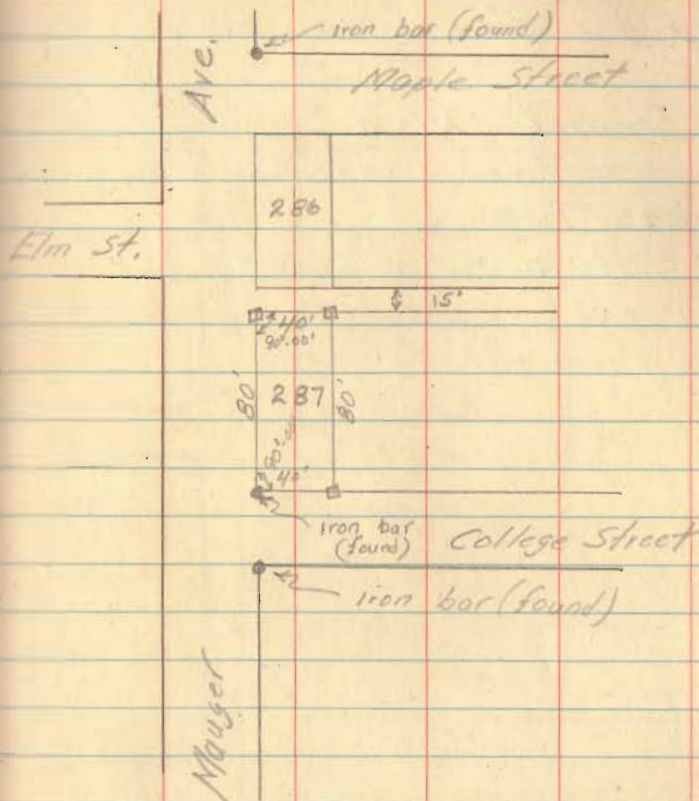 iron bar (found)
Ave.
Maple Street
286
Elm St.
15'
40'
90°-00'
80'
287
80'
90°-00'
40'
iron bar
(found)
College Street
iron bar (found)
Mauger